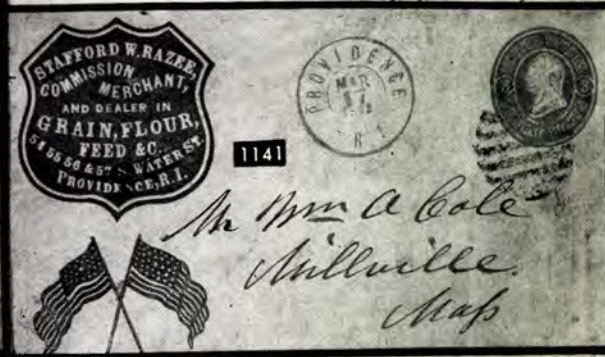 STAFFORD W. RAZEE,
COMMISSION
MERCHANT,
AND DEALER IN
GRAIN, FLOUR,
FEED &C.
54 55 56 & 57 S. WATER ST.
PROVIDENCE, R.I.
PROVIDENCE
MAR
R I
1141
Mr Wm A Cole
Millville.
Mass